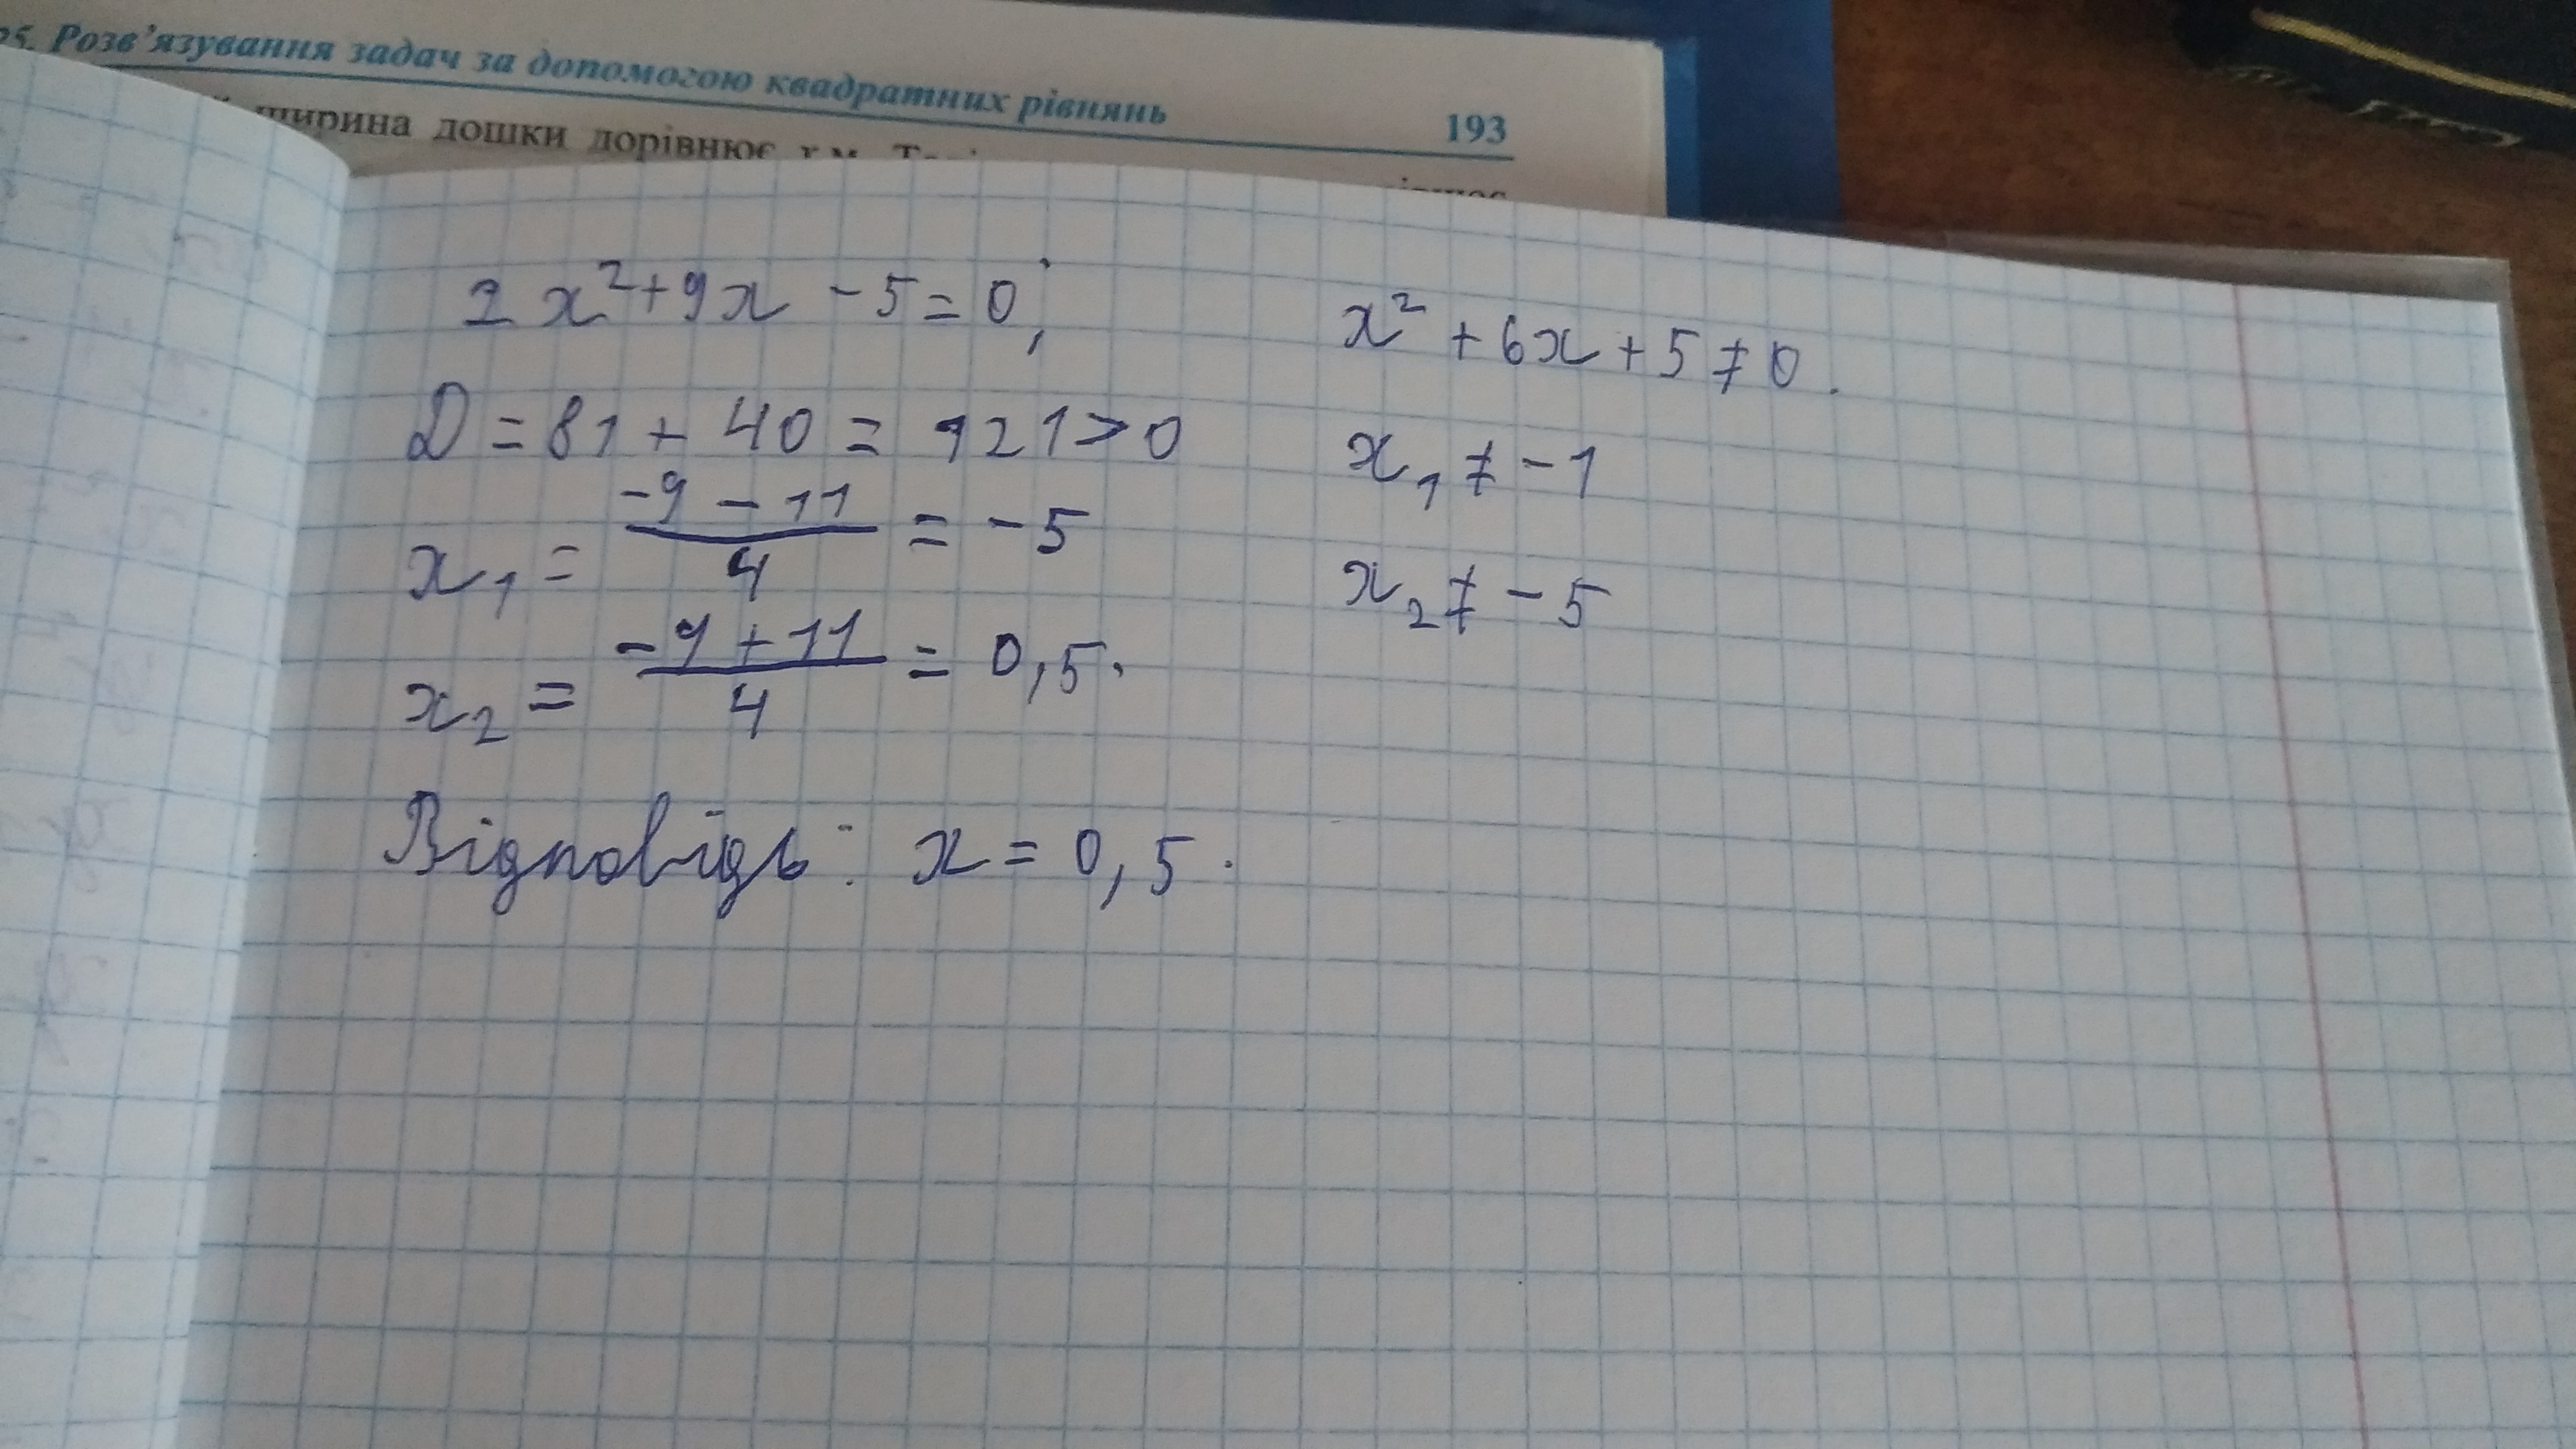 25. Розв'язування задач за допомогою квадратних рівнянь 193
ширина дошки дорівнює х м.
2x² + 9x - 5 = 0;
D = 81 + 40 = 121 > 0
x₁ = (-9 - 11)/4 = -5
x₂ = (-9 + 11)/4 = 0,5.
Відповідь: x = 0,5.
x² + 6x + 5 ≠ 0.
x₁ ≠ -1
x₂ ≠ -5